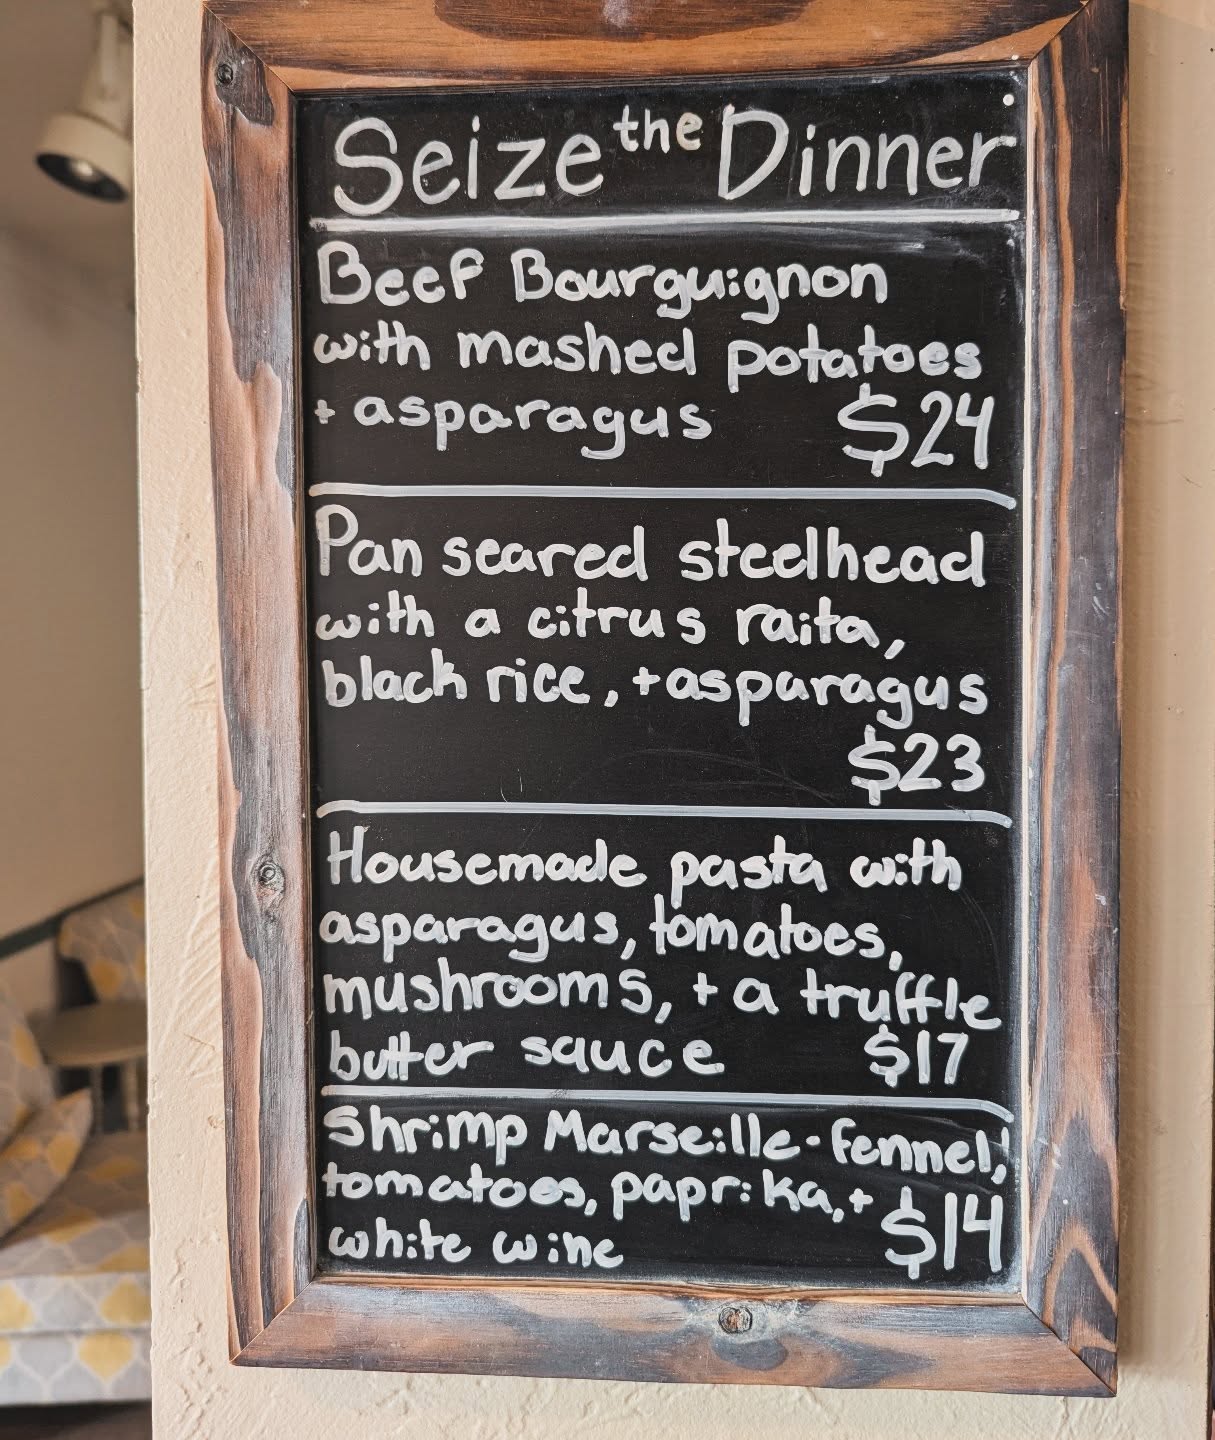 Seize the Dinner
Beef Bourguignon
with mashed potatoes
+ asparagus $24
Pan seared steelhead
with a citrus raita,
black rice, + asparagus
$23
Housemade pasta with
asparagus, tomatoes,
mushrooms, + a truffle
butter sauce $17
Shrimp Marseille - fennel,
tomatoes, paprika, +
white wine $14